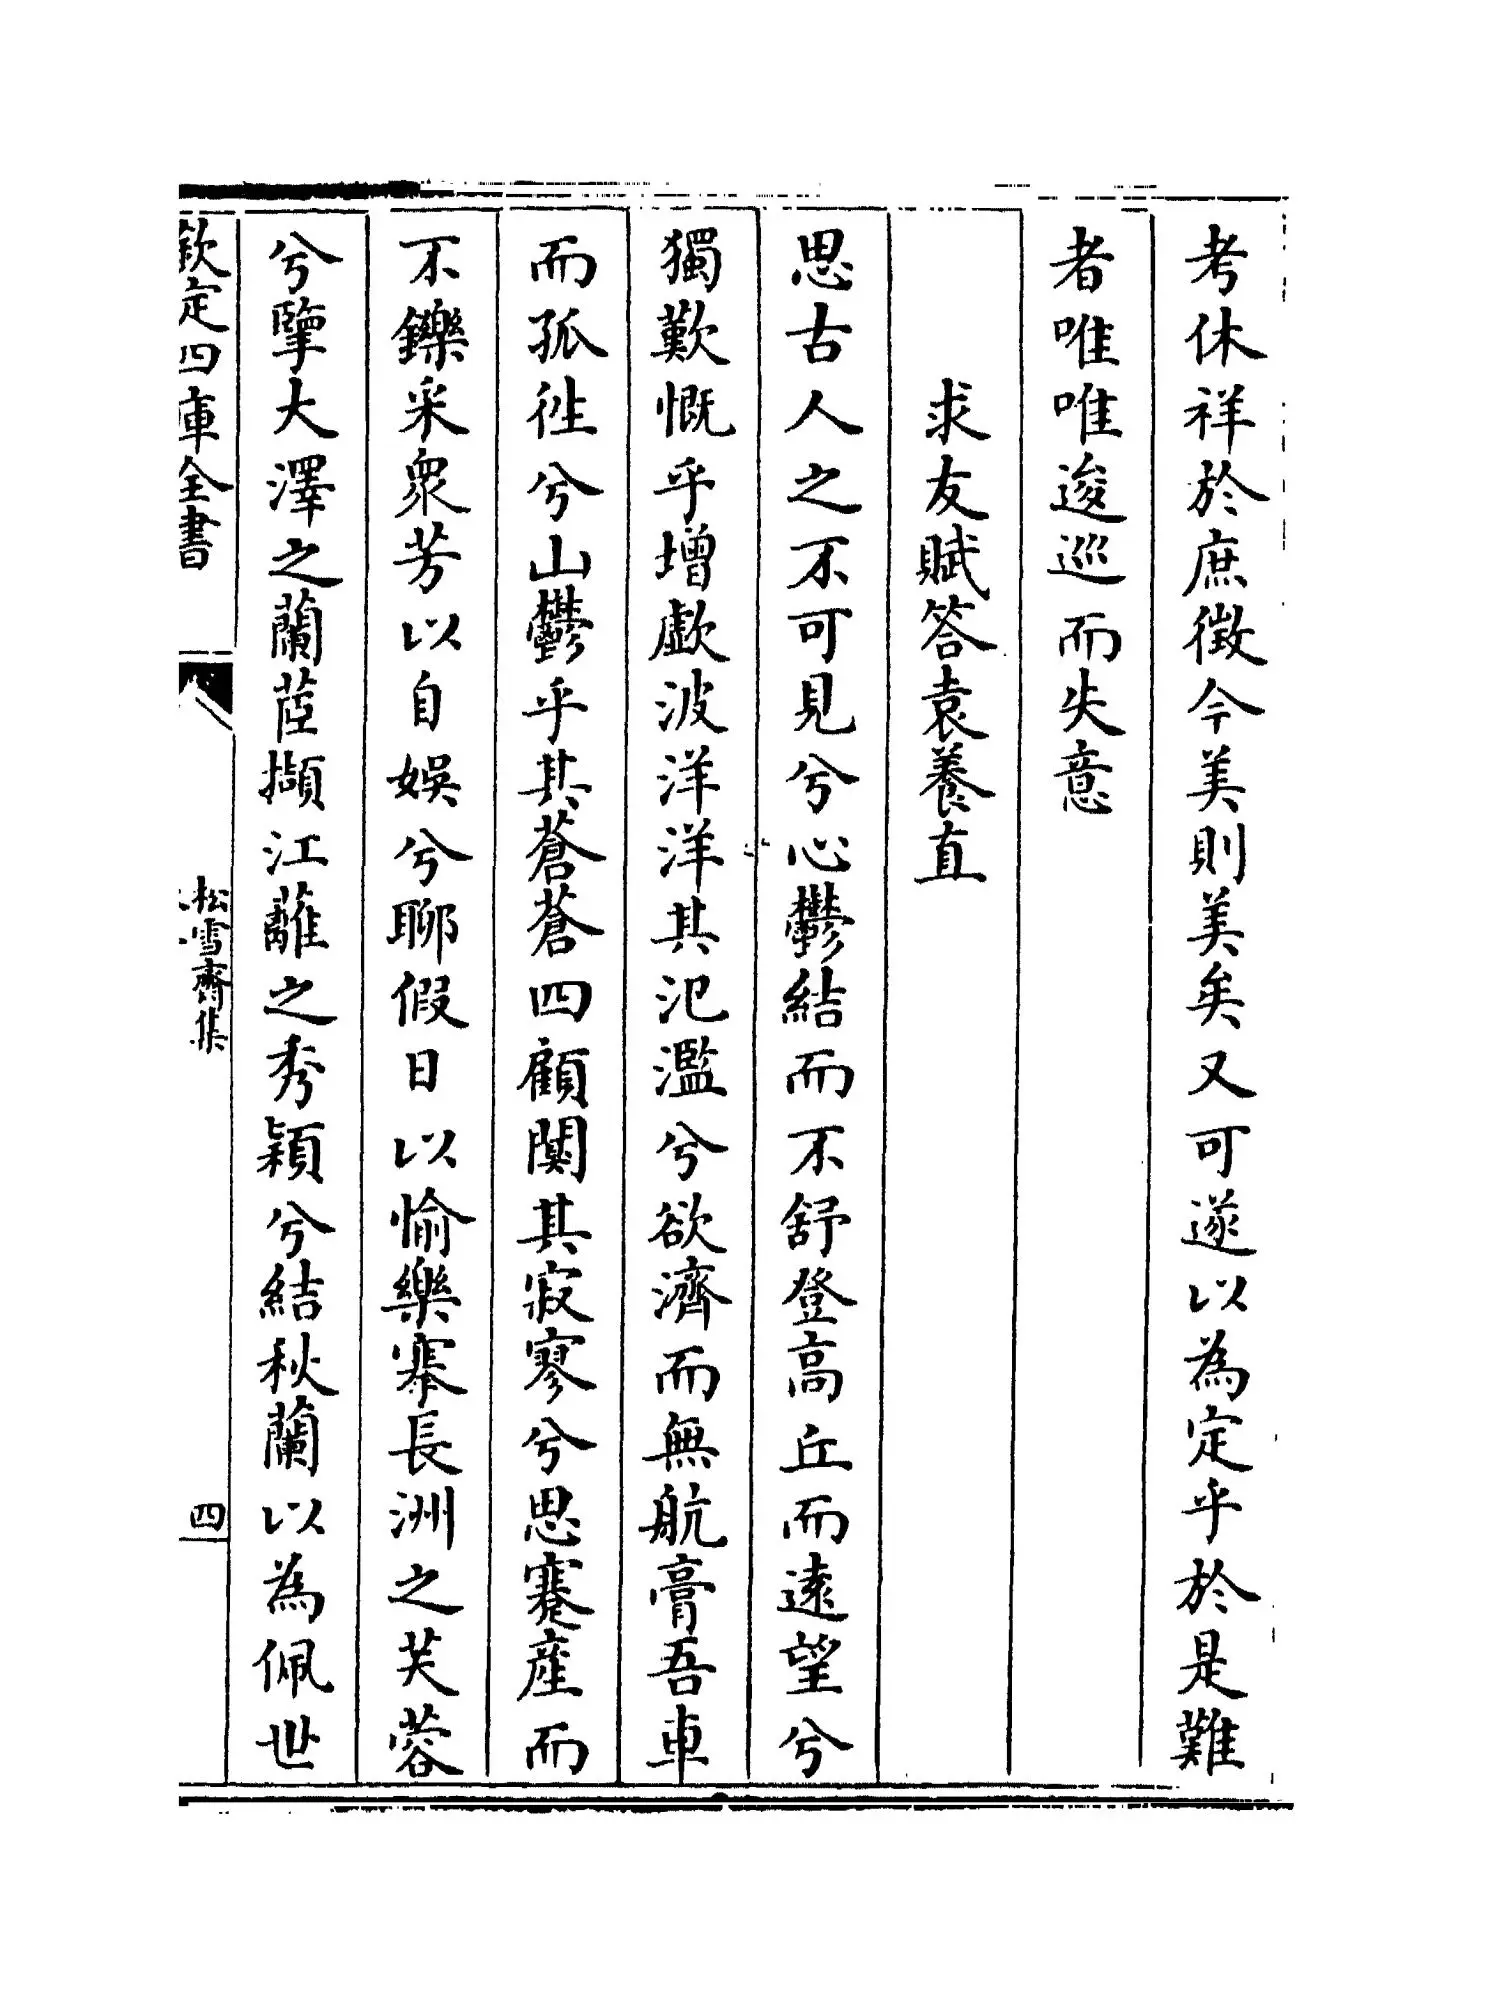 考休祥於庶徴今美則美矣又可遂以為定乎於是難
者唯唯逡巡而失意
求友賦答袁養直
思古人之不可見兮心鬱結而不舒登高丘而遠望兮
獨歎慨乎增歔波洋洋其氾濫兮欲濟而無航膏吾車
而孤徃兮山鬱乎其蒼蒼四顧闃其寂寥兮思蹇産而
不鑠采衆芳以自娛兮聊假日以愉樂搴長洲之芙蓉
兮擥大澤之蘭茝擷江蘺之秀穎兮結秋蘭以為佩世
欽定四庫全書
松雪齋集
四